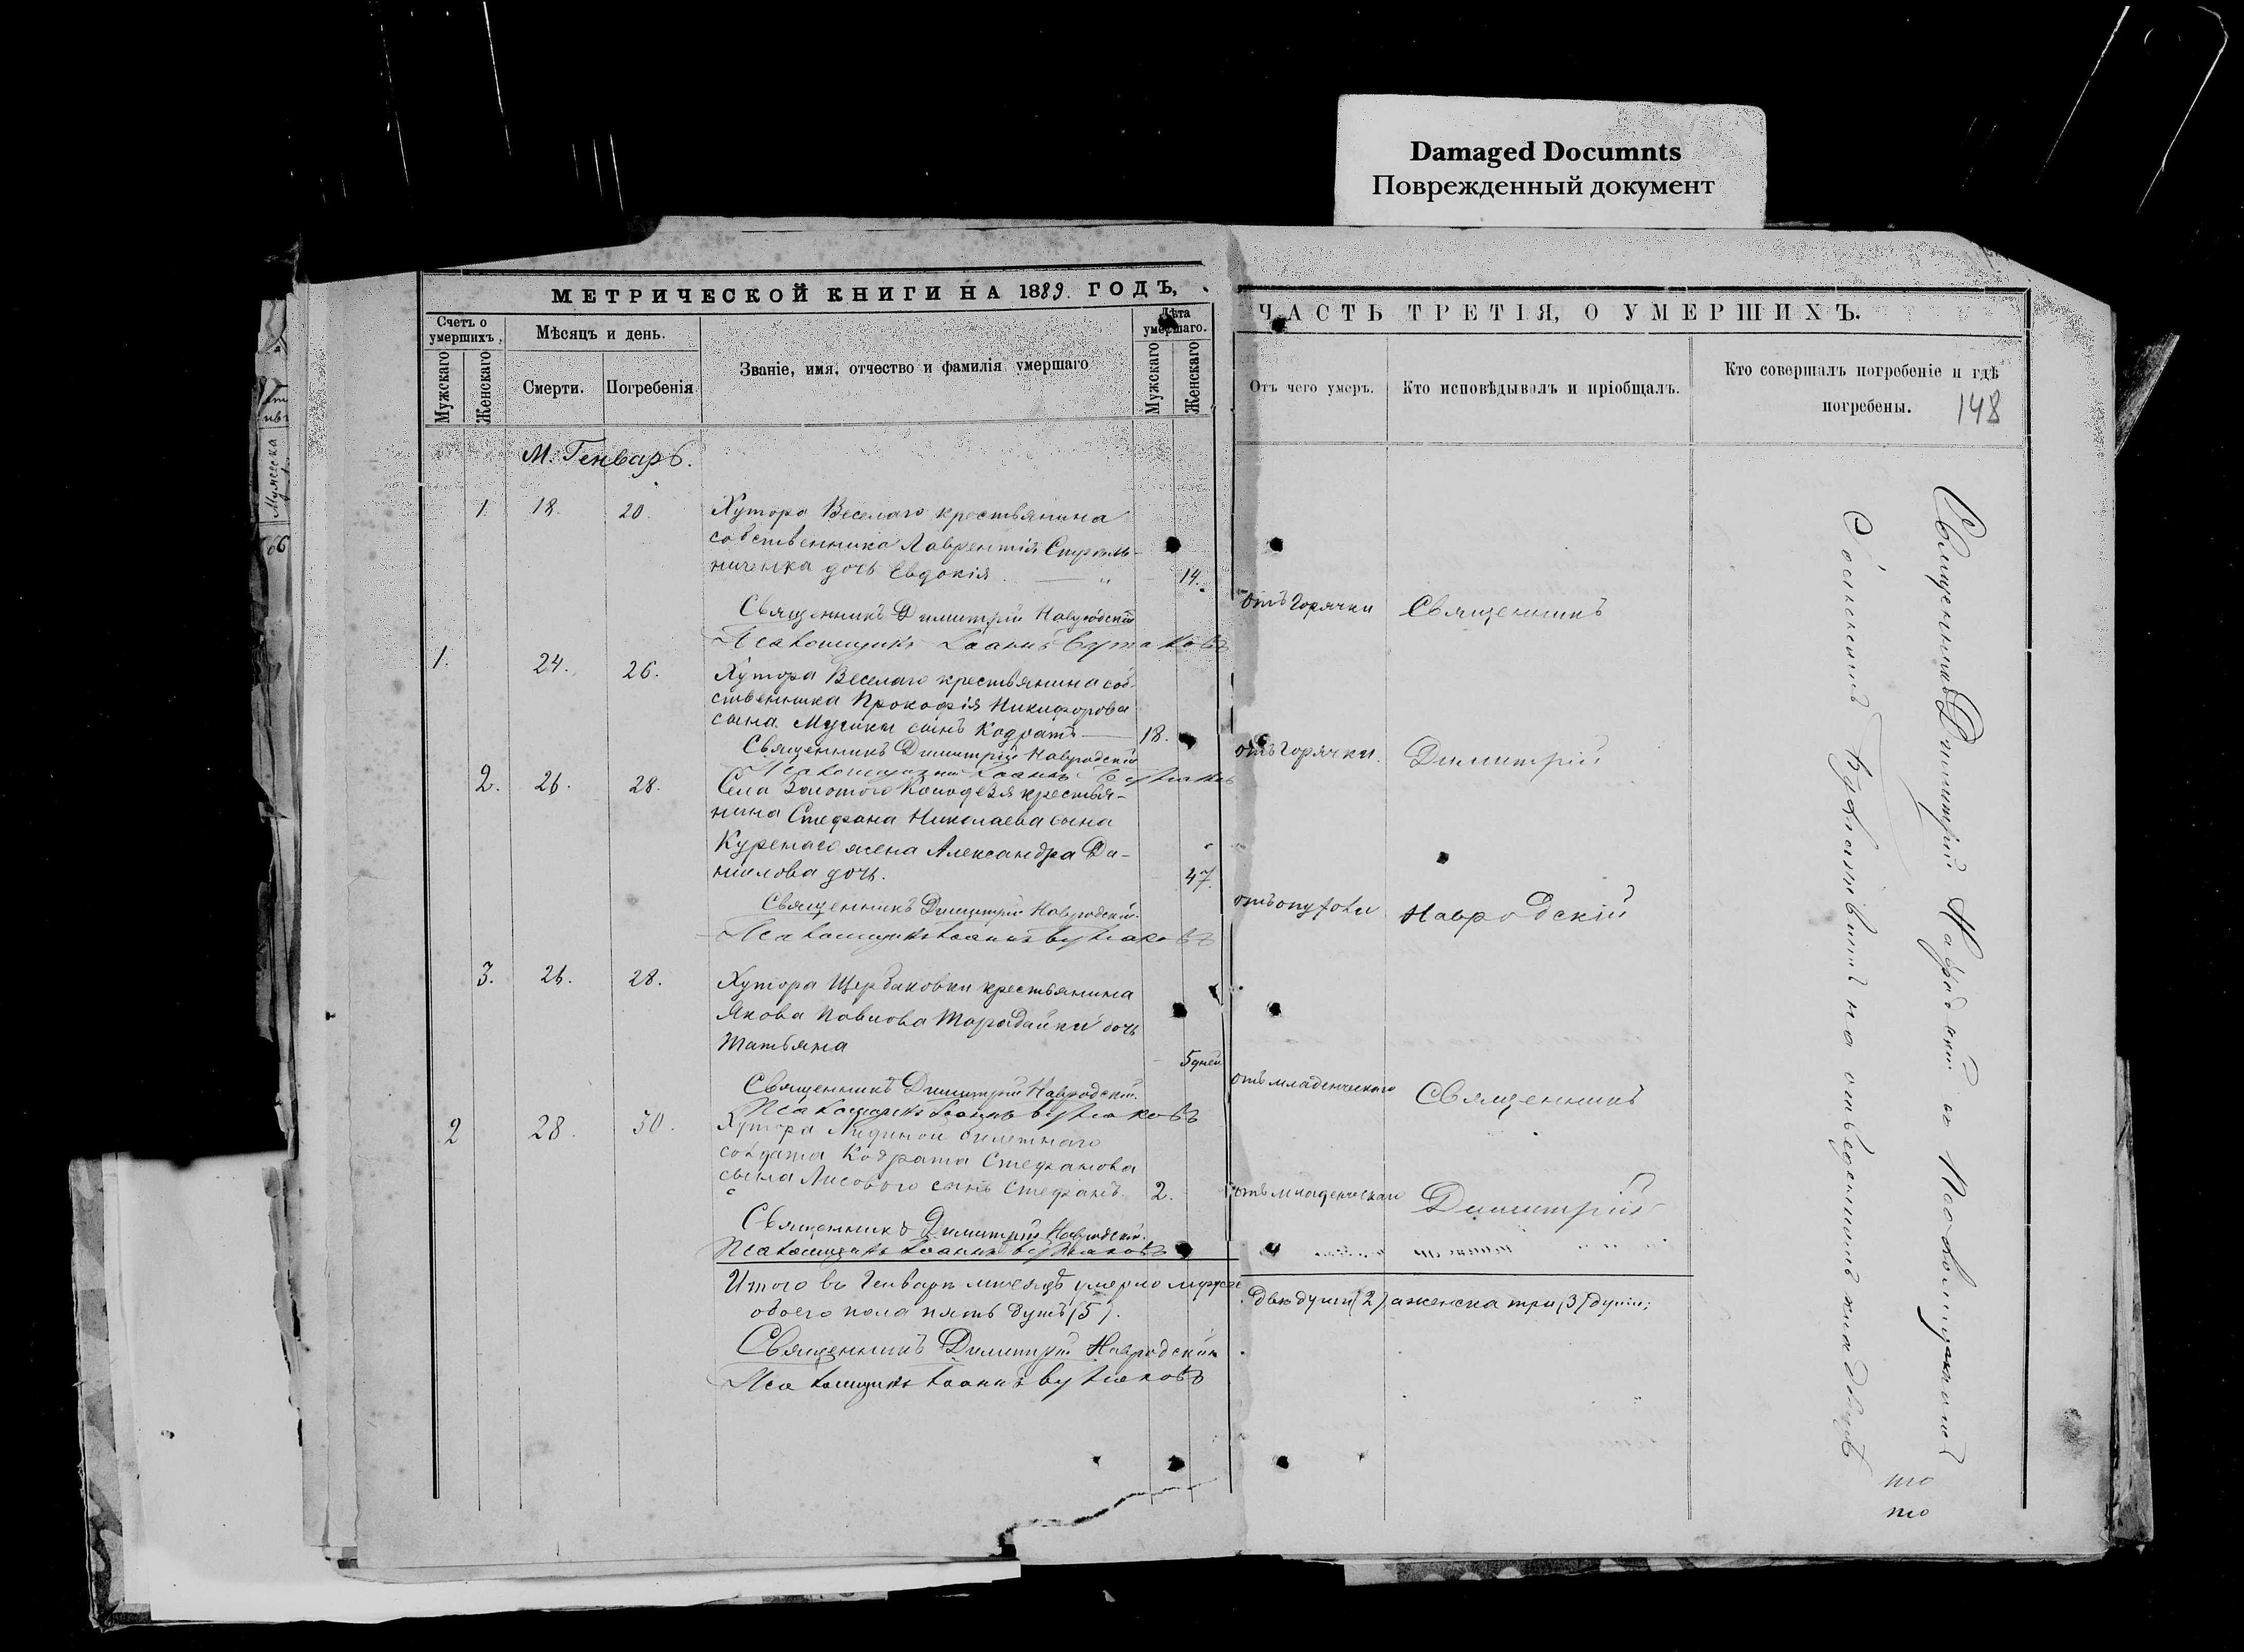 Damaged Documnts
Поврежденный документ
МЕТРИЧЕСКОЙ КНИГИ НА 1889 ГОДЪ,
Счетъ о умершихъ.
Мужскаго
Женскаго
Мѣсяцъ и день.
Смерти.
Погребенія
Званіе, имя, отчество и фамилія умершаго
Лѣта умершаго.
Мужскаго
Женскаго
М. Генварь.
1 18. 20. Хутора Веселаго крестьянина
собственника Лаврентія
ниченка дочь Евдокія 14.
Священникъ Димитрій Навродскій
Псаломщикъ Іоаннъ
1. 24. 26. Хутора Веселаго крестьянина соб-
ственника Прокофія Никифорова
сына сынъ Кодратъ 18.
Священникъ Димитрій Навродскій
Псаломщикъ Іоаннъ
2. 26. 28. Села Золотого Колодезя крестья-
нина Стефана Николаева сына
Куренаго жена Александра Да-
ніилова дочь. 47.
Священникъ Димитрій Навродскій
Псаломщикъ Іоаннъ
3. 26. 28. Хутора Щербаковки крестьянина
Якова Павлова Тарадайки дочь
Татьяна
5 дней
Священникъ Димитрій Навродскій.
Псаломщикъ Іоаннъ
2 28. 30. Хутора билетнаго
солдата Кодрата Стефанова
сына Лисового сынъ Стефанъ 2.
Священникъ Димитрій Навродскій.
Псаломщикъ Іоаннъ
Итого въ Генварѣ мѣсяцѣ умерло мужеска
обоего пола пять душъ (5).
Священникъ Димитрій Навродскій
Псаломщикъ Іоаннъ
ЧАСТЬ ТРЕТІЯ, О УМЕРШИХЪ.
Отъ чего умеръ.
Кто исповѣдывалъ и пріобщалъ.
Кто совершалъ погребеніе и гдѣ
погребены.
148
отъ горячки Священникъ
отъ горячки. Димитрій
отъ опухоли Навродскій
отъ младенческаго Священникъ
отъ младенческаго Димитрій
двѣ души (2) а женска три (3) души;
Священникъ Димитрій Навродскій съ Псаломщикомъ
на отведенномъ кладбищѣ
то
то